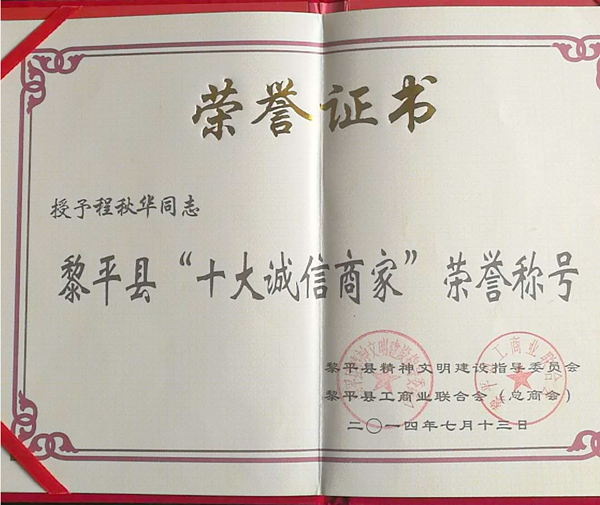 荣誉证书
授予程秋华同志
黎平县“十大诚信商家”荣誉称号
黎平县精神文明建设指导委员会
黎平县工商业联合会（总商会）
二〇一四年七月十三日